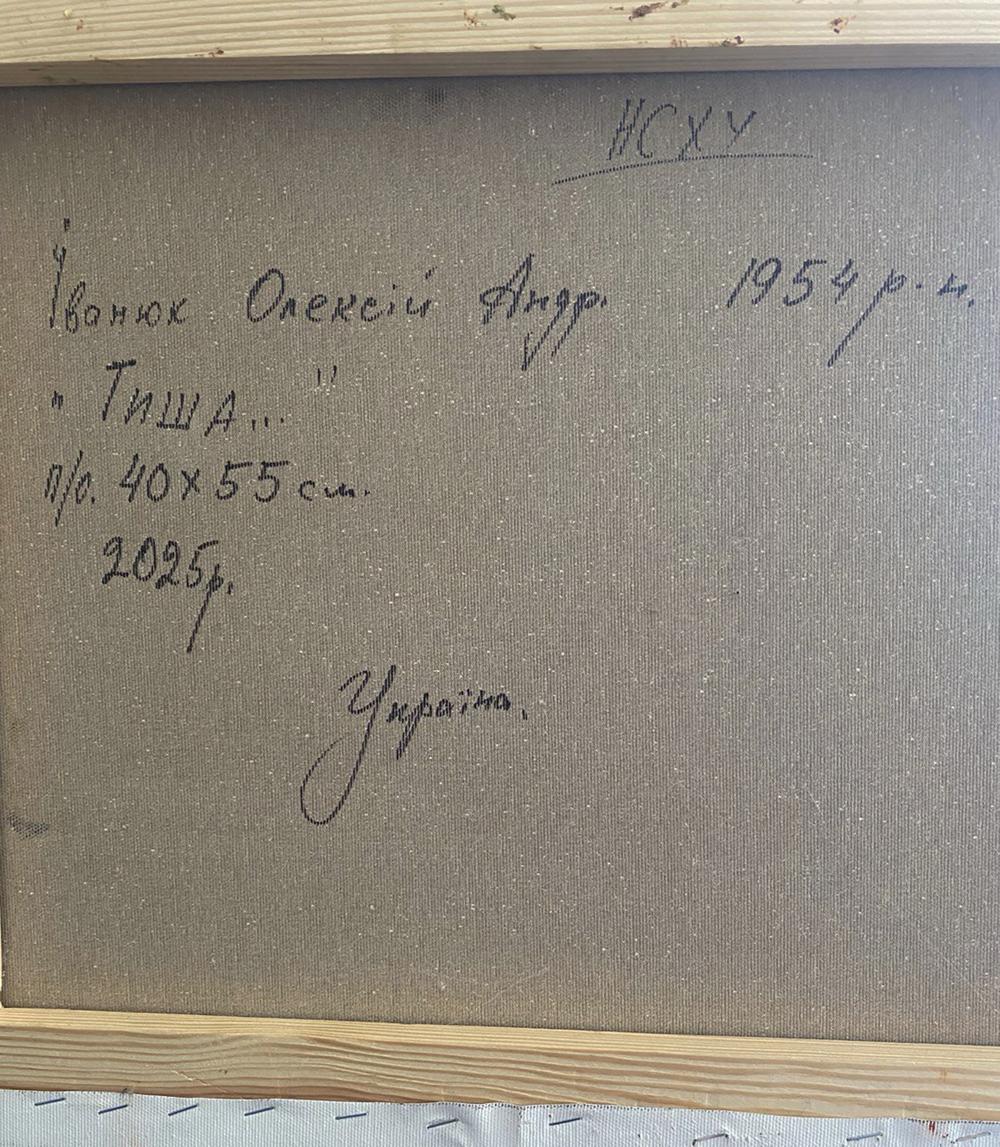 НСХУ
Іванюк Олексій Андр. 1954 р.н.
"Тиша..."
п/о. 40х55 см.
2025р.
Україна.